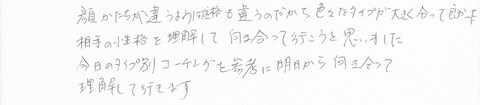 顔かたちが違うように性格も違うのだから色々なタイプが大きく合って良かった
相手の性格を理解して向き合って行こうと思いました
今日のタイプ別コーチングを参考に明日から向き合って
理解して行きます